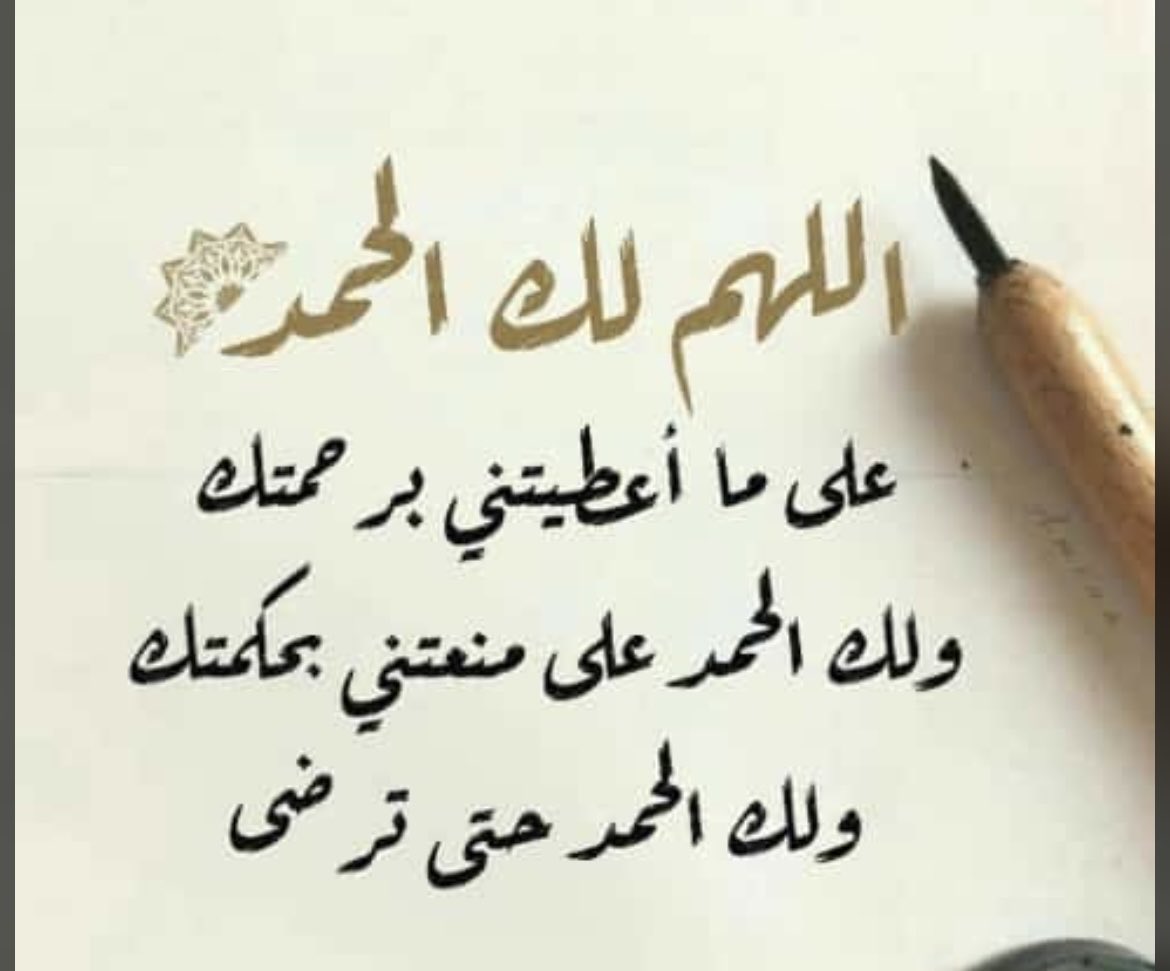 اللهم لك الحمد
على ما أعطيتني برحمتك
ولك الحمد على منعتني بحكمتك
ولك الحمد حتى ترضى